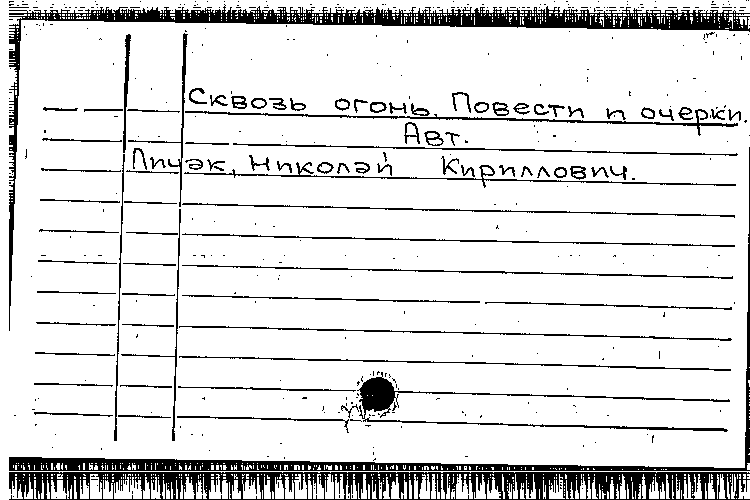 Сквозь огонь. Повести и очерки.
Авт.
Личак, Николай Кириллович.